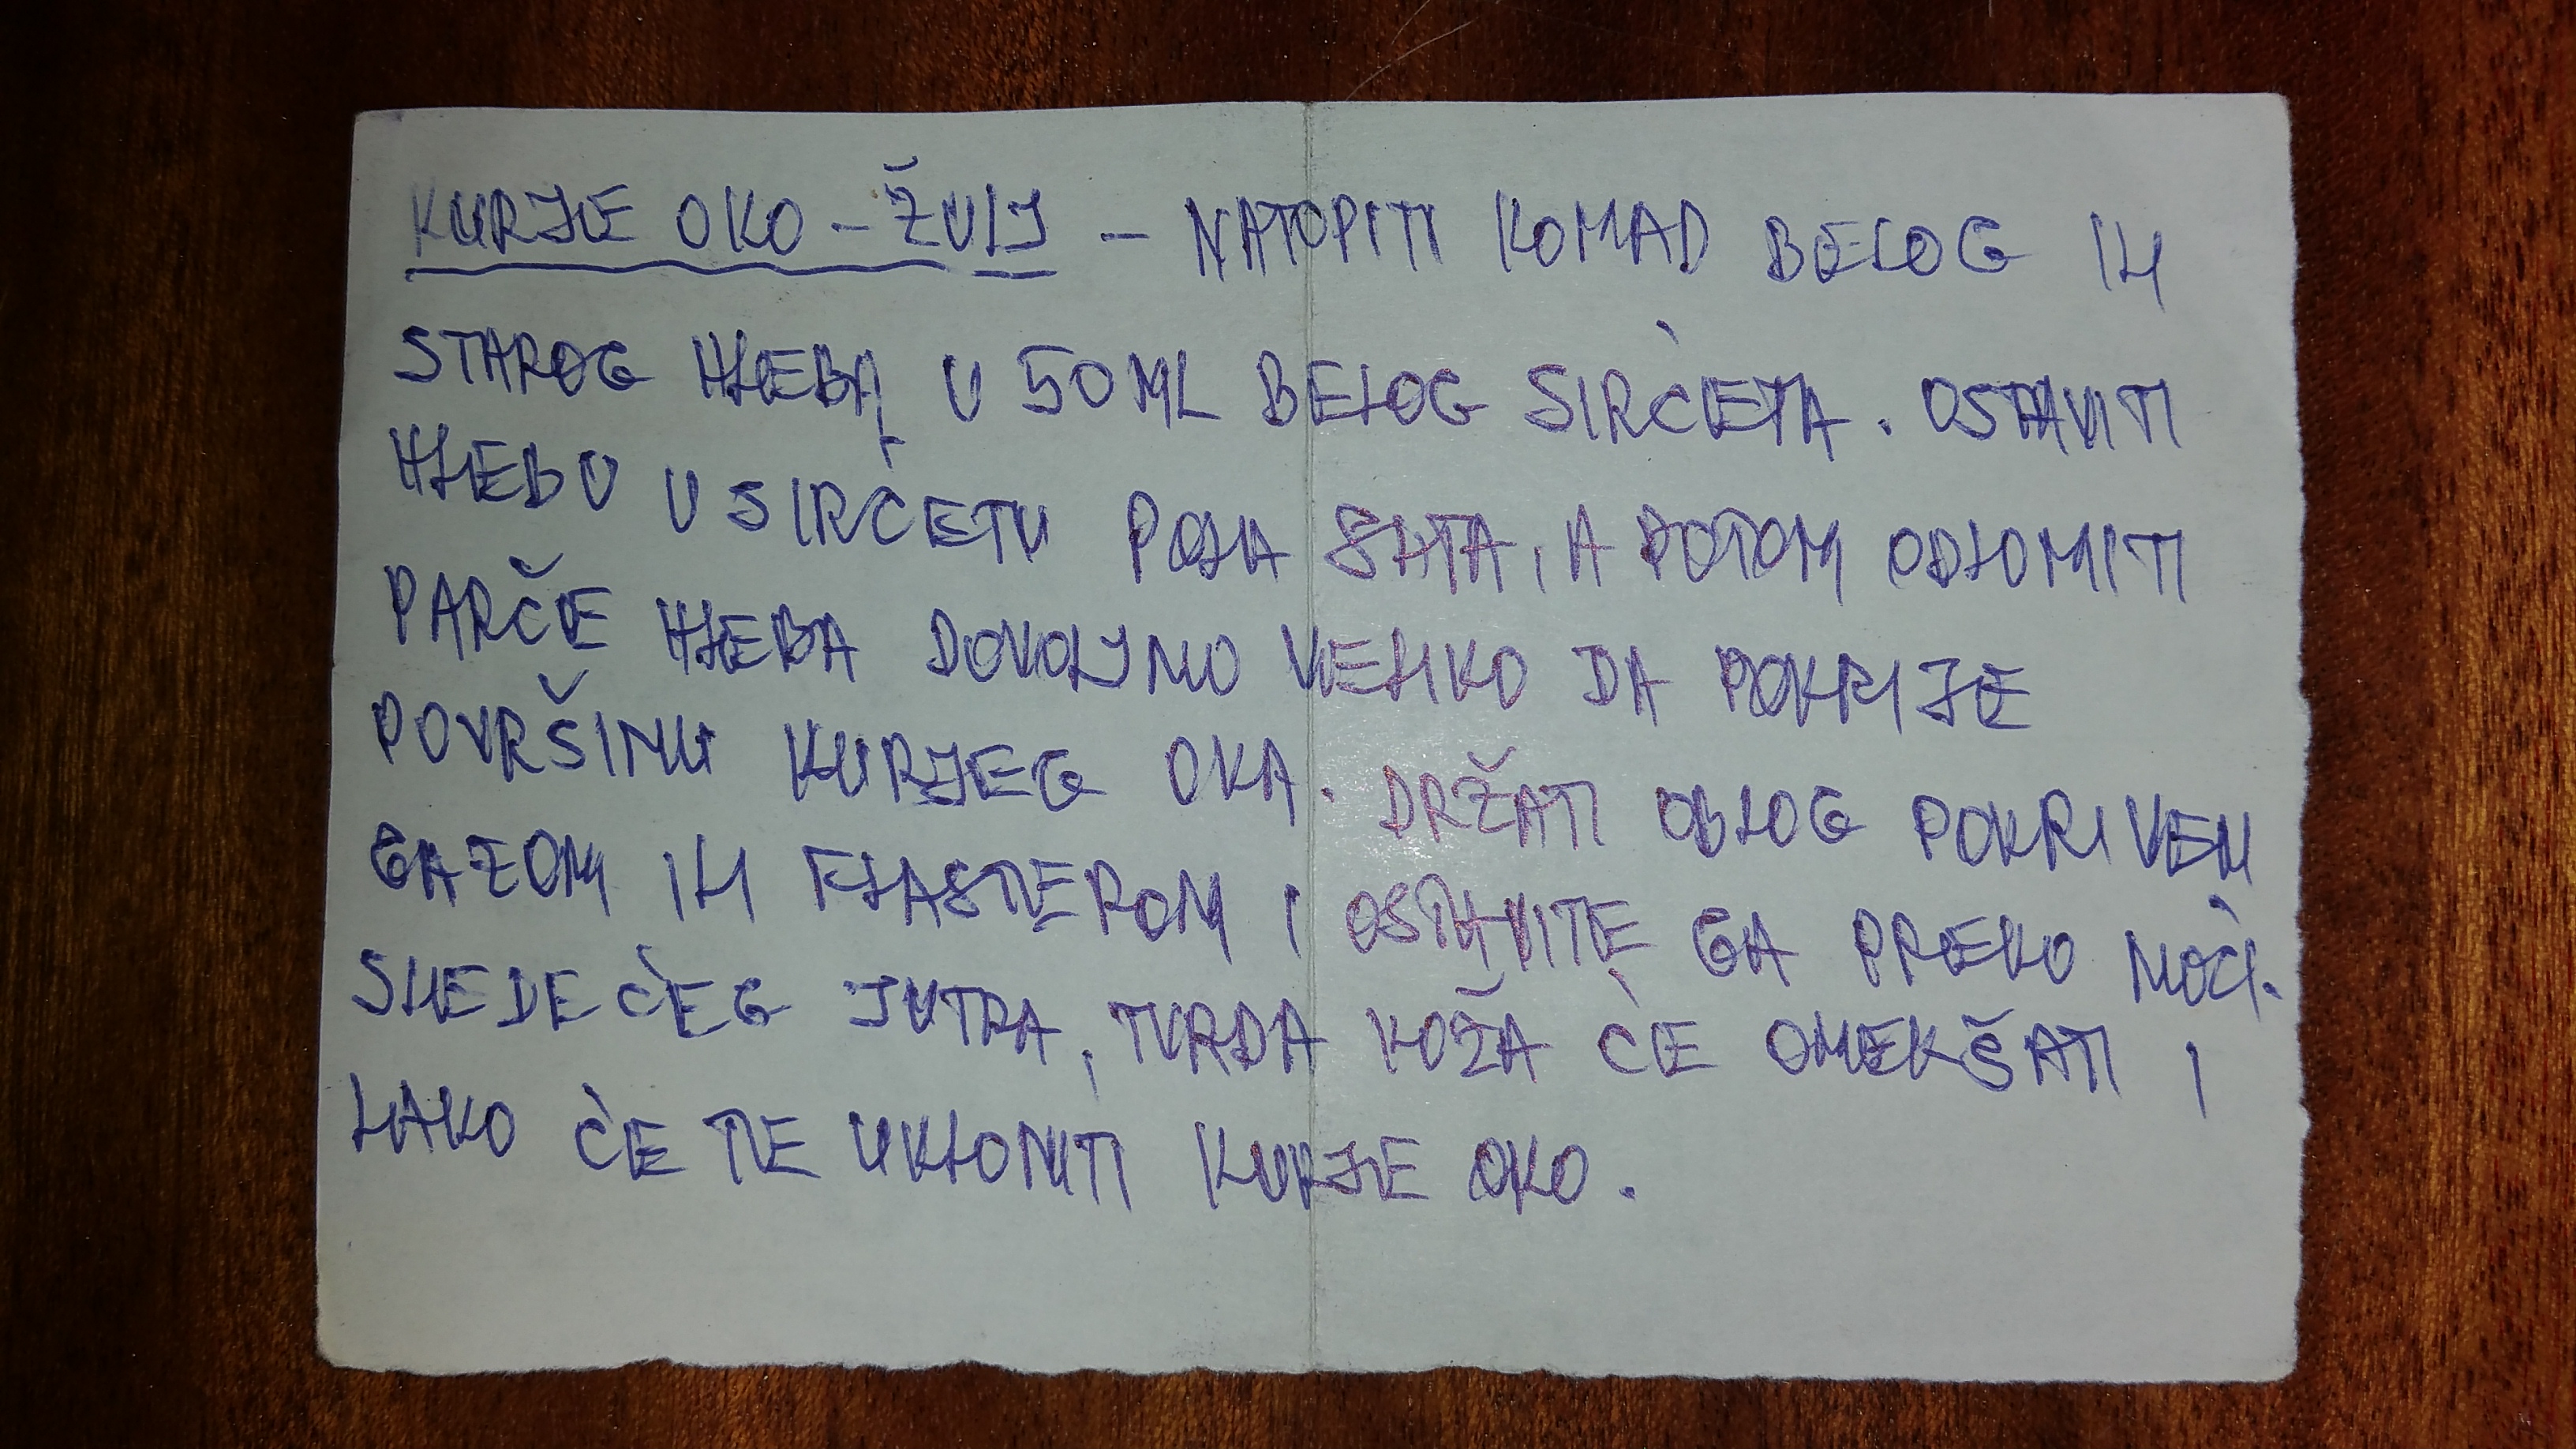 KURJE OKO - ŽULJ - NATOPITI KOMAD BELOG ILI
STAROG HLEBA U 50 ML BELOG SIRĆETA. OSTAVITI
HLEB U SIRĆETU POLA SATA, A POTOM POLOMITI
PARČE HLEBA DOVOLJNO VELIKO DA POKRIJE
POVRŠINU KURJEG OKA. DRŽATI OBLOG POKRIVEN
GAZOM ILI FLASTEROM I OSTAVITE GA PREKO NOĆI.
SLEDEĆEG JUTRA, TVRDA KOŽA ĆE OMEKŠATI I
LAKO ĆETE UKLONITI KURJE OKO.